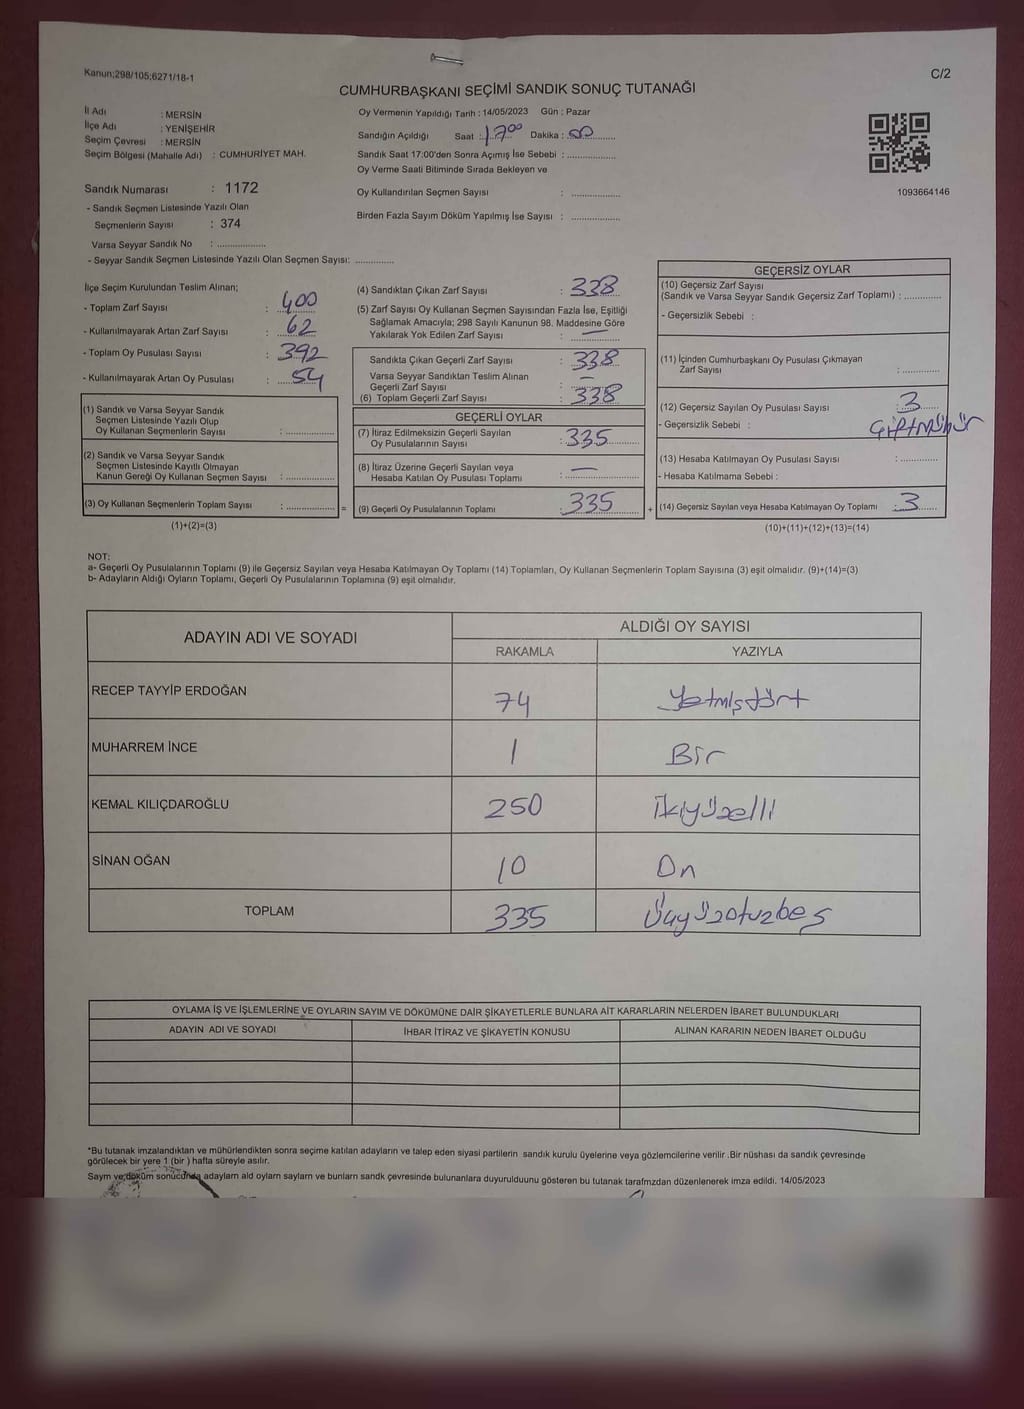 Kanun;298/105;6271/18-1
C/2
CUMHURBAŞKANI SEÇİMİ SANDIK SONUÇ TUTANAĞI
İl Adı : MERSİN
İlçe Adı : YENİŞEHİR
Seçim Çevresi : MERSİN
Seçim Bölgesi (Mahalle Adı) : CUMHURİYET MAH.
Oy Vermenin Yapıldığı Tarih : 14/05/2023 Gün : Pazar
Sandığın Açıldığı Saat : 17⁰⁰ Dakika : 00
Sandık Saat 17:00'den Sonra Açımış İse Sebebi : ................
Oy Verme Saati Bitiminde Sırada Bekleyen ve
Oy Kullandırılan Seçmen Sayısı : ................
Birden Fazla Sayım Döküm Yapılmış İse Sayısı : ................
1093664146
Sandık Numarası : 1172
- Sandık Seçmen Listesinde Yazılı Olan
Seçmenlerin Sayısı : 374
Varsa Seyyar Sandık No : ................
- Seyyar Sandık Seçmen Listesinde Yazılı Olan Seçmen Sayısı: ............
İlçe Seçim Kurulundan Teslim Alınan;
- Toplam Zarf Sayısı : 400
- Kullanılmayarak Artan Zarf Sayısı : 62
- Toplam Oy Pusulası Sayısı : 392
- Kullanılmayarak Artan Oy Pusulası : 54
(1) Sandık ve Varsa Seyyar Sandık
Seçmen Listesinde Yazılı Olup
Oy Kullanan Seçmenlerin Sayısı : ................
(2) Sandık ve Varsa Seyyar Sandık
Seçmen Listesinde Kayıtlı Olmayan
Kanun Gereği Oy Kullanan Seçmen Sayısı : ................
(3) Oy Kullanan Seçmenlerin Toplam Sayısı : ................ =
(1)+(2)=(3)
(4) Sandıktan Çıkan Zarf Sayısı : 338
(5) Zarf Sayısı Oy Kullanan Seçmen Sayısından Fazla İse, Eşitliği
Sağlamak Amacıyla; 298 Sayılı Kanunun 98. Maddesine Göre
Yakılarak Yok Edilen Zarf Sayısı : —
Sandıkta Çıkan Geçerli Zarf Sayısı : 338
Varsa Seyyar Sandıktan Teslim Alınan
Geçerli Zarf Sayısı : —
(6) Toplam Geçerli Zarf Sayısı : 338
GEÇERLİ OYLAR
(7) İtiraz Edilmeksizin Geçerli Sayılan
Oy Pusulalarının Sayısı : 335
(8) İtiraz Üzerine Geçerli Sayılan veya
Hesaba Katılan Oy Pusulası Toplamı : —
(9) Geçerli Oy Pusulalarının Toplamı : 335 +
GEÇERSİZ OYLAR
(10) Geçersiz Zarf Sayısı
(Sandık ve Varsa Seyyar Sandık Geçersiz Zarf Toplamı) : ............
- Geçersizlik Sebebi :
(11) İçinden Cumhurbaşkanı Oy Pusulası Çıkmayan
Zarf Sayısı : ............
(12) Geçersiz Sayılan Oy Pusulası Sayısı : 3
- Geçersizlik Sebebi : Çiftmühür
(13) Hesaba Katılmayan Oy Pusulası Sayısı : ............
- Hesaba Katılmama Sebebi :
(14) Geçersiz Sayılan veya Hesaba Katılmayan Oy Toplamı : 3
(10)+(11)+(12)+(13)=(14)
NOT:
a- Geçerli Oy Pusulalarının Toplamı (9) ile Geçersiz Sayılan veya Hesaba Katılmayan Oy Toplamı (14) Toplamları, Oy Kullanan Seçmenlerin Toplam Sayısına (3) eşit olmalıdır. (9)+(14)=(3)
b- Adayların Aldığı Oyların Toplamı, Geçerli Oy Pusulalarının Toplamına (9) eşit olmalıdır.
ADAYIN ADI VE SOYADI
ALDIĞI OY SAYISI
RAKAMLA YAZIYLA
RECEP TAYYİP ERDOĞAN 74 Yetmişdört
MUHARREM İNCE 1 Bir
KEMAL KILIÇDAROĞLU 250 İkiyüzelli
SİNAN OĞAN 10 On
TOPLAM 335 Üçyüzotuzbeş
OYLAMA İŞ VE İŞLEMLERİNE VE OYLARIN SAYIM VE DÖKÜMÜNE DAİR ŞİKAYETLERLE BUNLARA AİT KARARLARIN NELERDEN İBARET BULUNDUKLARI
ADAYIN ADI VE SOYADI İHBAR İTİRAZ VE ŞİKAYETİN KONUSU ALINAN KARARIN NEDEN İBARET OLDUĞU
*Bu tutanak imzalandıktan ve mühürlendikten sonra seçime katılan adayların ve talep eden siyasi partilerin sandık kurulu üyelerine veya gözlemcilerine verilir .Bir nüshası da sandık çevresinde
görülecek bir yere 1 (bir ) hafta süreyle asılır.
Saym ve döküm sonucunda adaylarn ald oylarn saylarn ve bunlarn sandk çevresinde bulunanlara duyurulduunu gösteren bu tutanak tarafmzdan düzenlenerek imza edildi. 14/05/2023